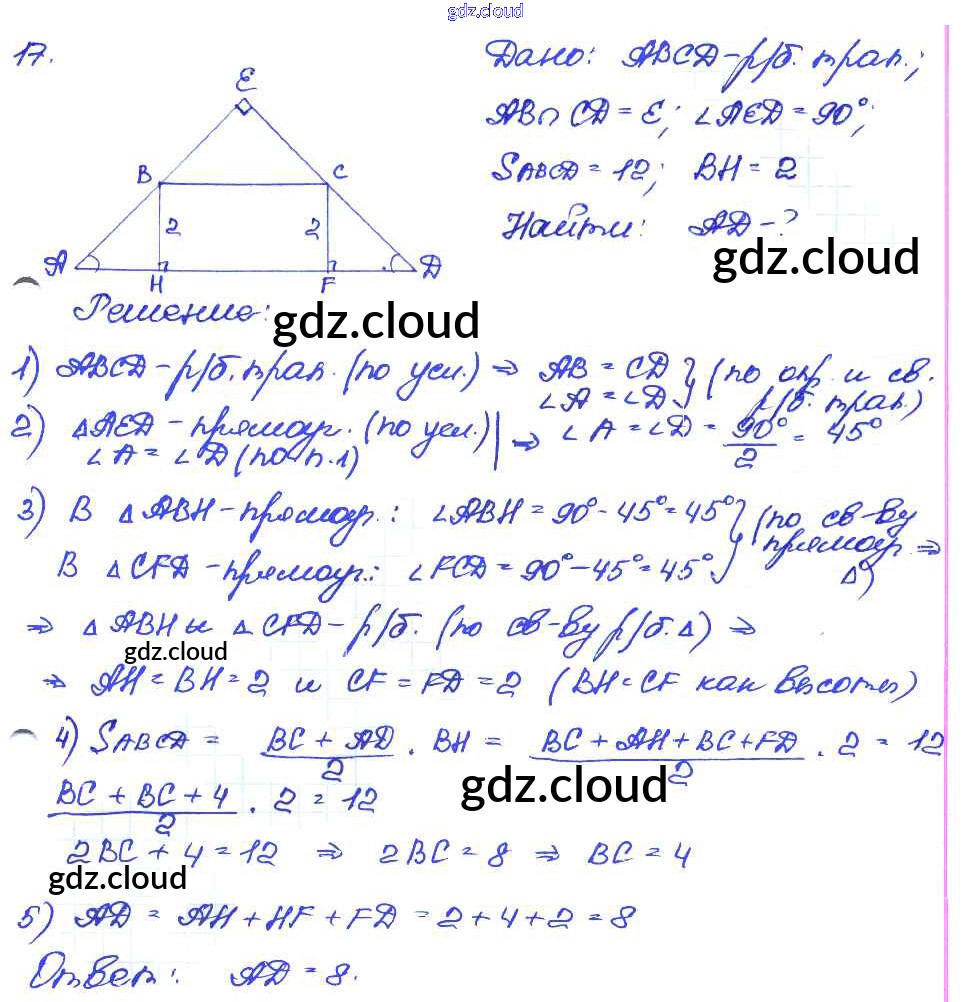 gdz.cloud
17.
E
B
C
2
2
A
H
F
D
Дано: ABCD - р/б. трап.;
AB ∩ CD = E; ∠AED = 90°;
SABCD = 12; BH = 2
Найти: AD - ?
gdz.cloud
Решение:
gdz.cloud
1) ABCD - р/б. трап. (по усл.) ⇒ AB = CD } (по опр. и св.
∠A = ∠D } р/б. трап.)
2) △AED - прямоуг. (по усл.) | ⇒ ∠A = ∠D = 90°/2 = 45°
∠A = ∠D (по п.1)
3) В △ABH - прямоуг.: ∠ABH = 90° - 45° = 45° } (по св-ву
В △CFD - прямоуг.: ∠FCD = 90° - 45° = 45° } прямоуг. ⇒
△)
⇒ △ABH и △CFD - р/б. (по св-ву р/б. △) ⇒
gdz.cloud
⇒ AH = BH = 2 и CF = FD = 2 (BH = CF как высоты)
4) SABCD = (BC + AD)/2 · BH = (BC + AH + BC + FD)/2 · 2 = 12
gdz.cloud
(BC + BC + 4)/2 · 2 = 12
2BC + 4 = 12 ⇒ 2BC = 8 ⇒ BC = 4
gdz.cloud
5) AD = AH + HF + FD = 2 + 4 + 2 = 8
Ответ: AD = 8.